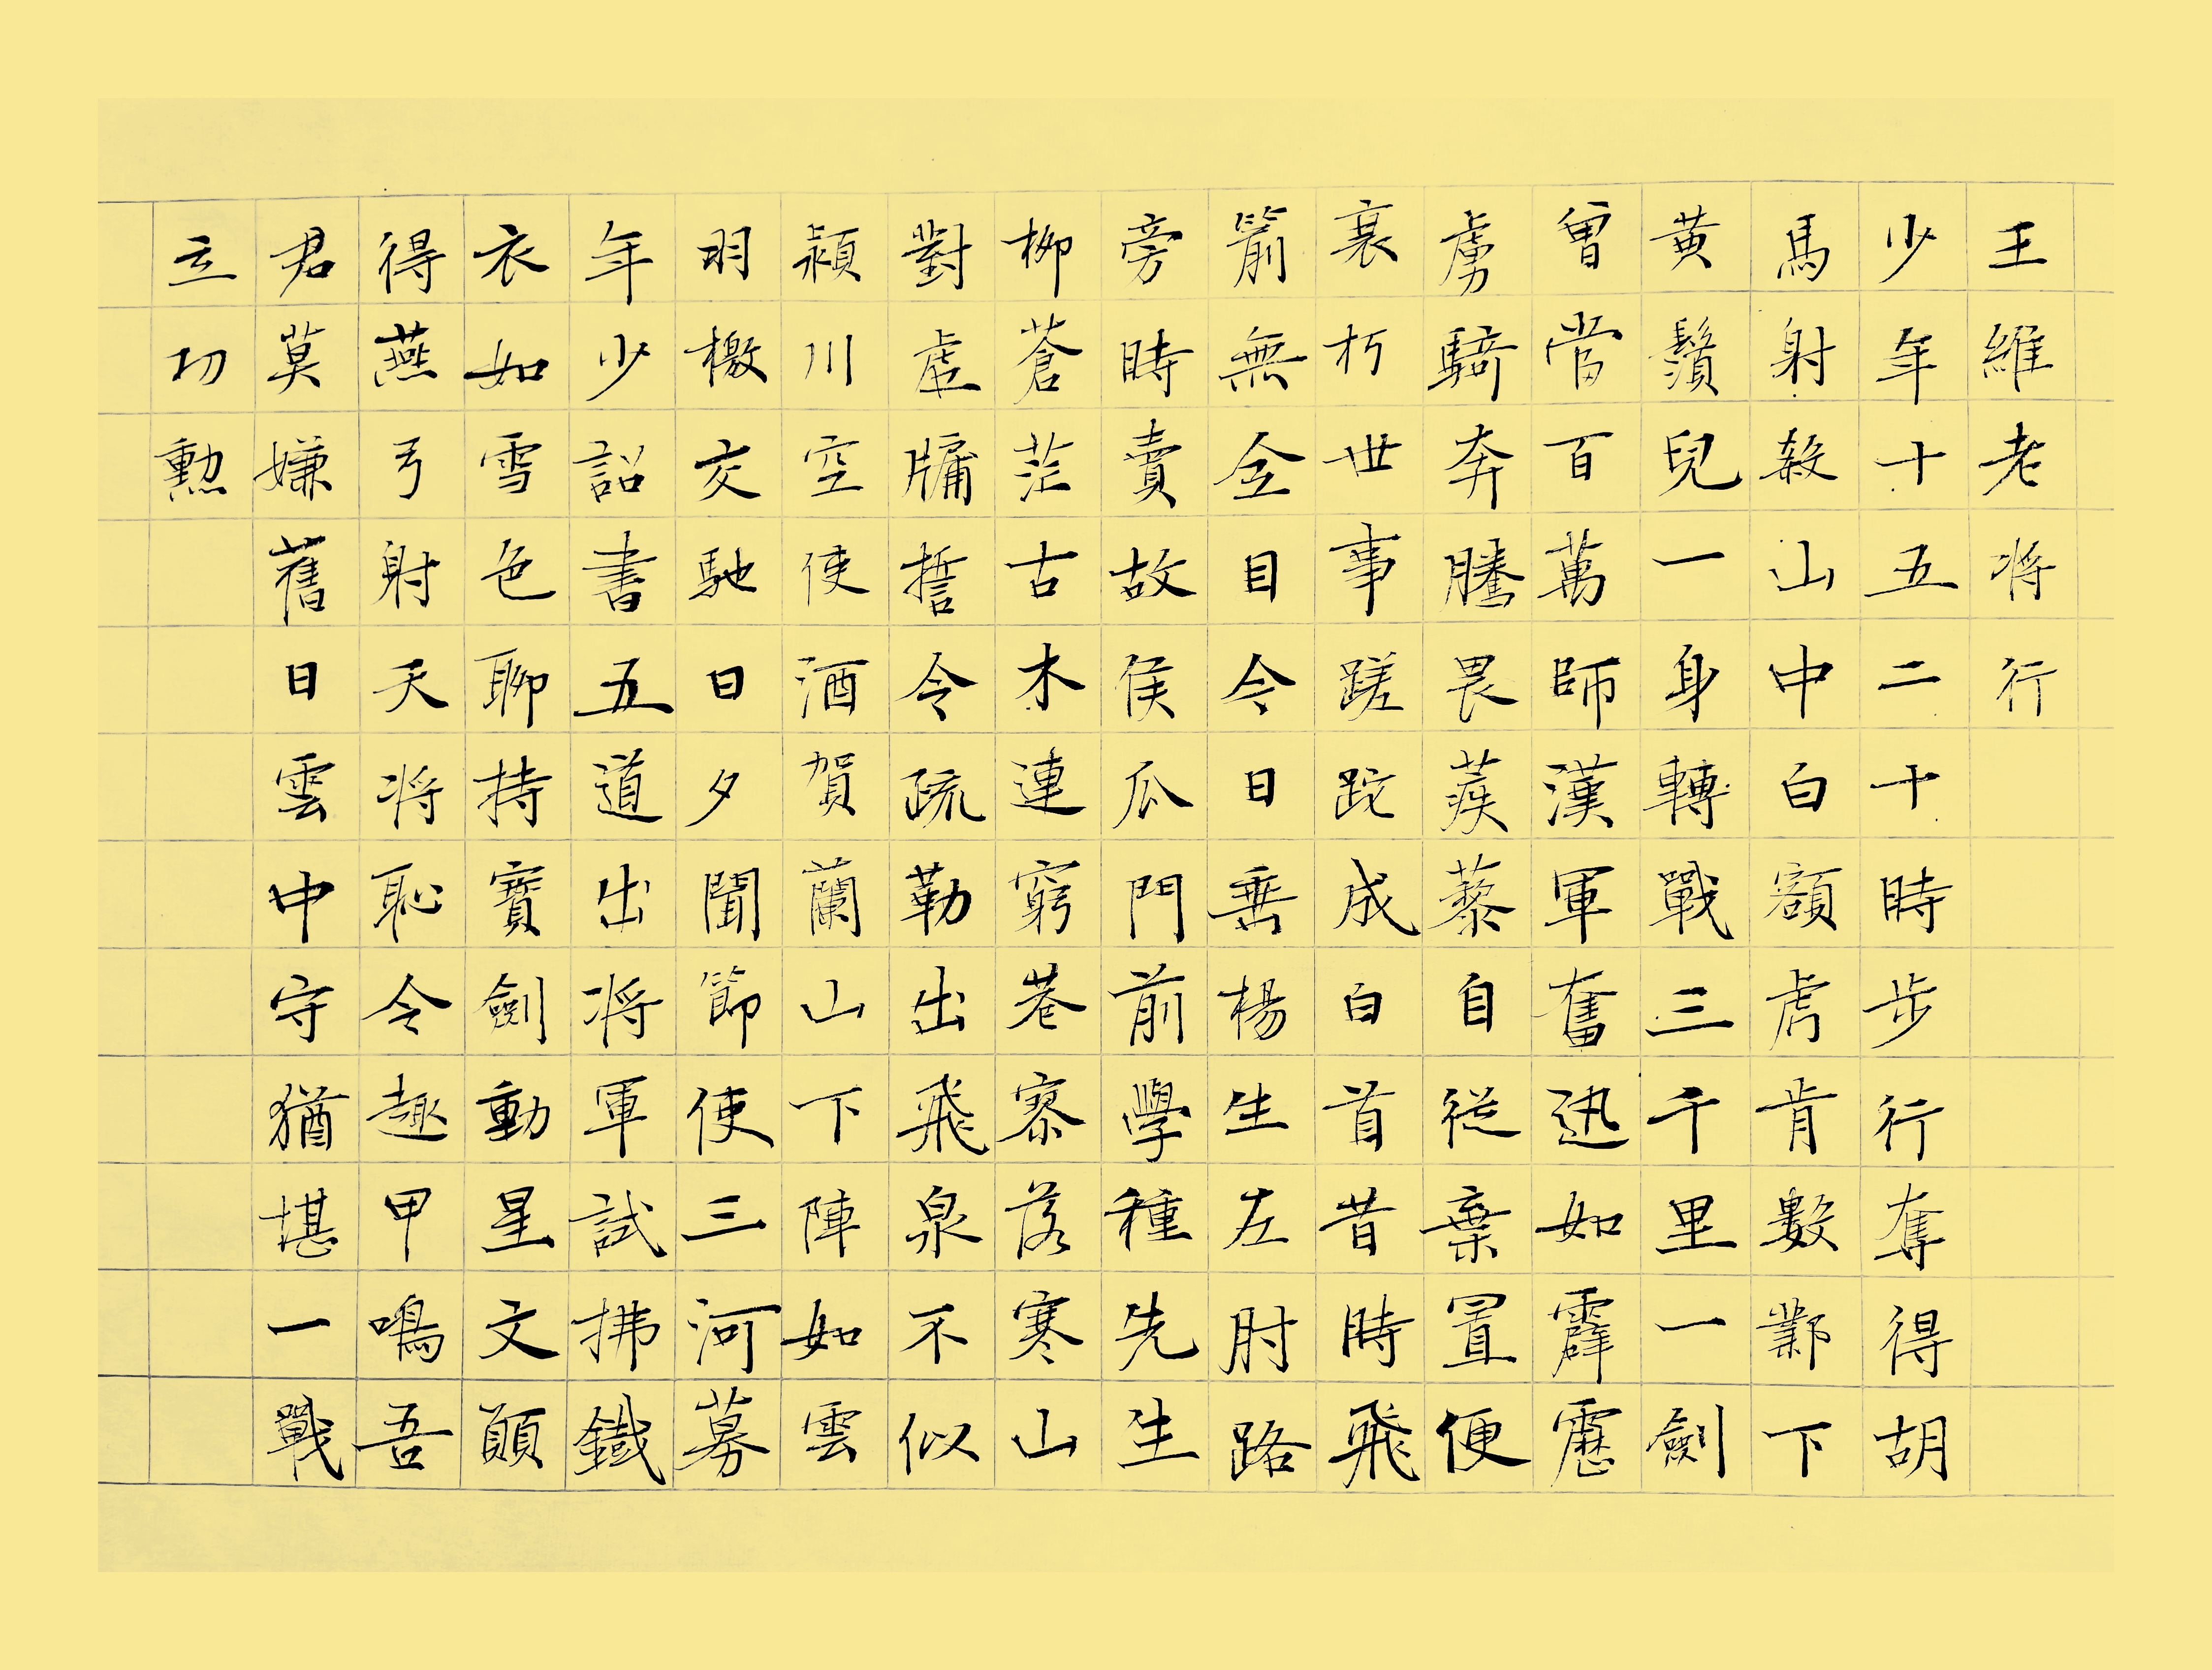 王維老将行
少年十五二十時步行奪得胡
馬射殺山中白額虎肯數鄴下
黄鬚兒一身轉戰三千里一劍
曾當百萬師漢軍奮迅如霹靂
虜騎奔騰畏蒺藜自從棄置便
衰朽世事蹉跎成白首昔時飛
箭無全目今日垂楊生左肘路
旁時賣故侯瓜門前學種先生
柳蒼茫古木連窮巷寥落寒山
對虛牖誓令疏勒出飛泉不似
潁川空使酒賀蘭山下陣如雲
羽檄交馳日夕聞節使三河募
年少詔書五道出将軍試拂鐵
衣如雪色聊持寶劍動星文願
得燕弓射天将恥令越甲鳴吾
君莫嫌舊日雲中守猶堪一戰
立功勲